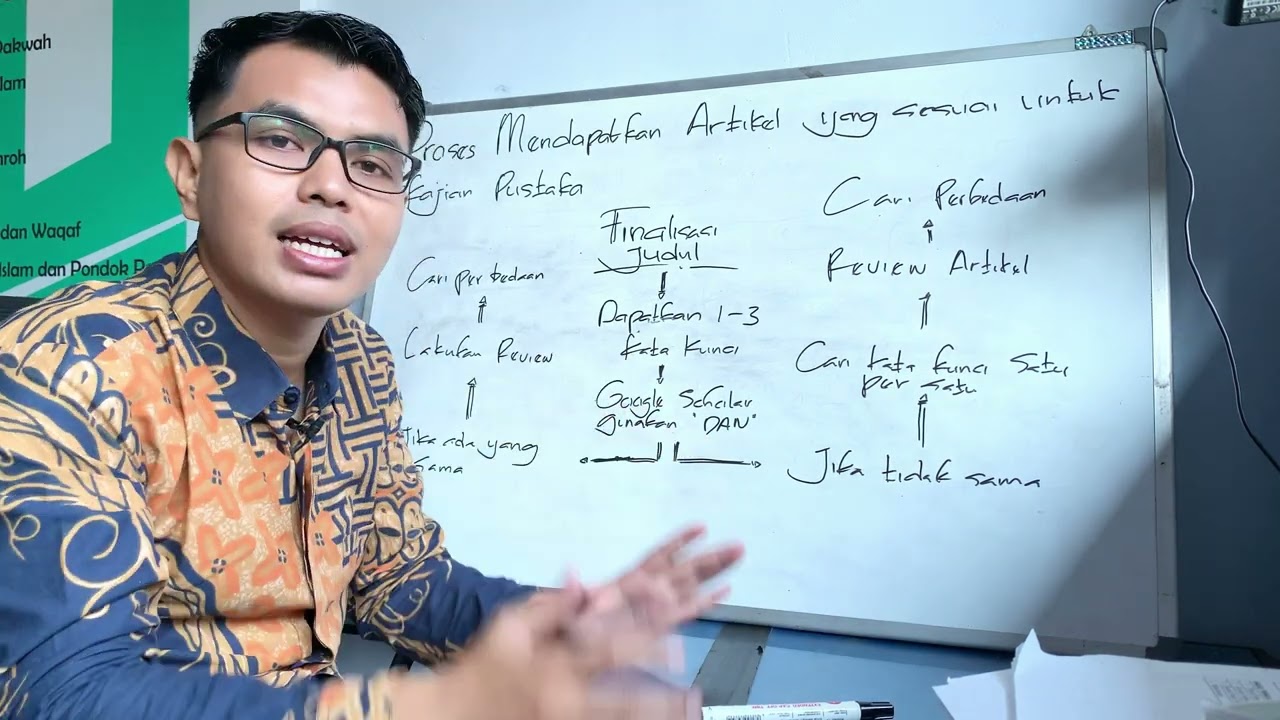 Dakwah
lam
nroh
dan Waqaf
Islam dan Pondok P
Proses Mendapatkan Artikel yang sesuai untuk
Kajian Pustaka
Finalisasi
Judul
Dapatkan 1-3
kata kunci
Google Scholar
gunakan "DAN"
Jika ada yang
sama
Lakukan Review
Cari perbedaan
Jika tidak sama
Cari kata kunci satu
per satu
Review Artikel
Cari Perbedaan